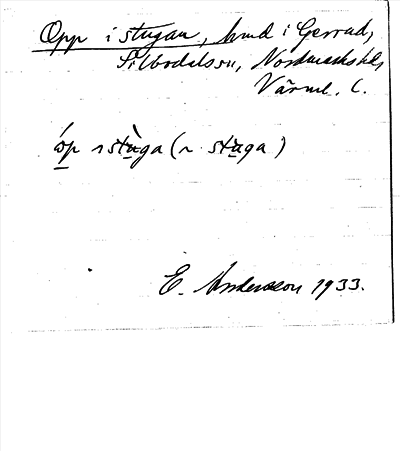 Opp i stugan, hmd i Gerrud,
Silbodals sn, Nordmarks hd,
Värml. l.
óp ı stùga (~ stùga)
E. Andersson 1933.